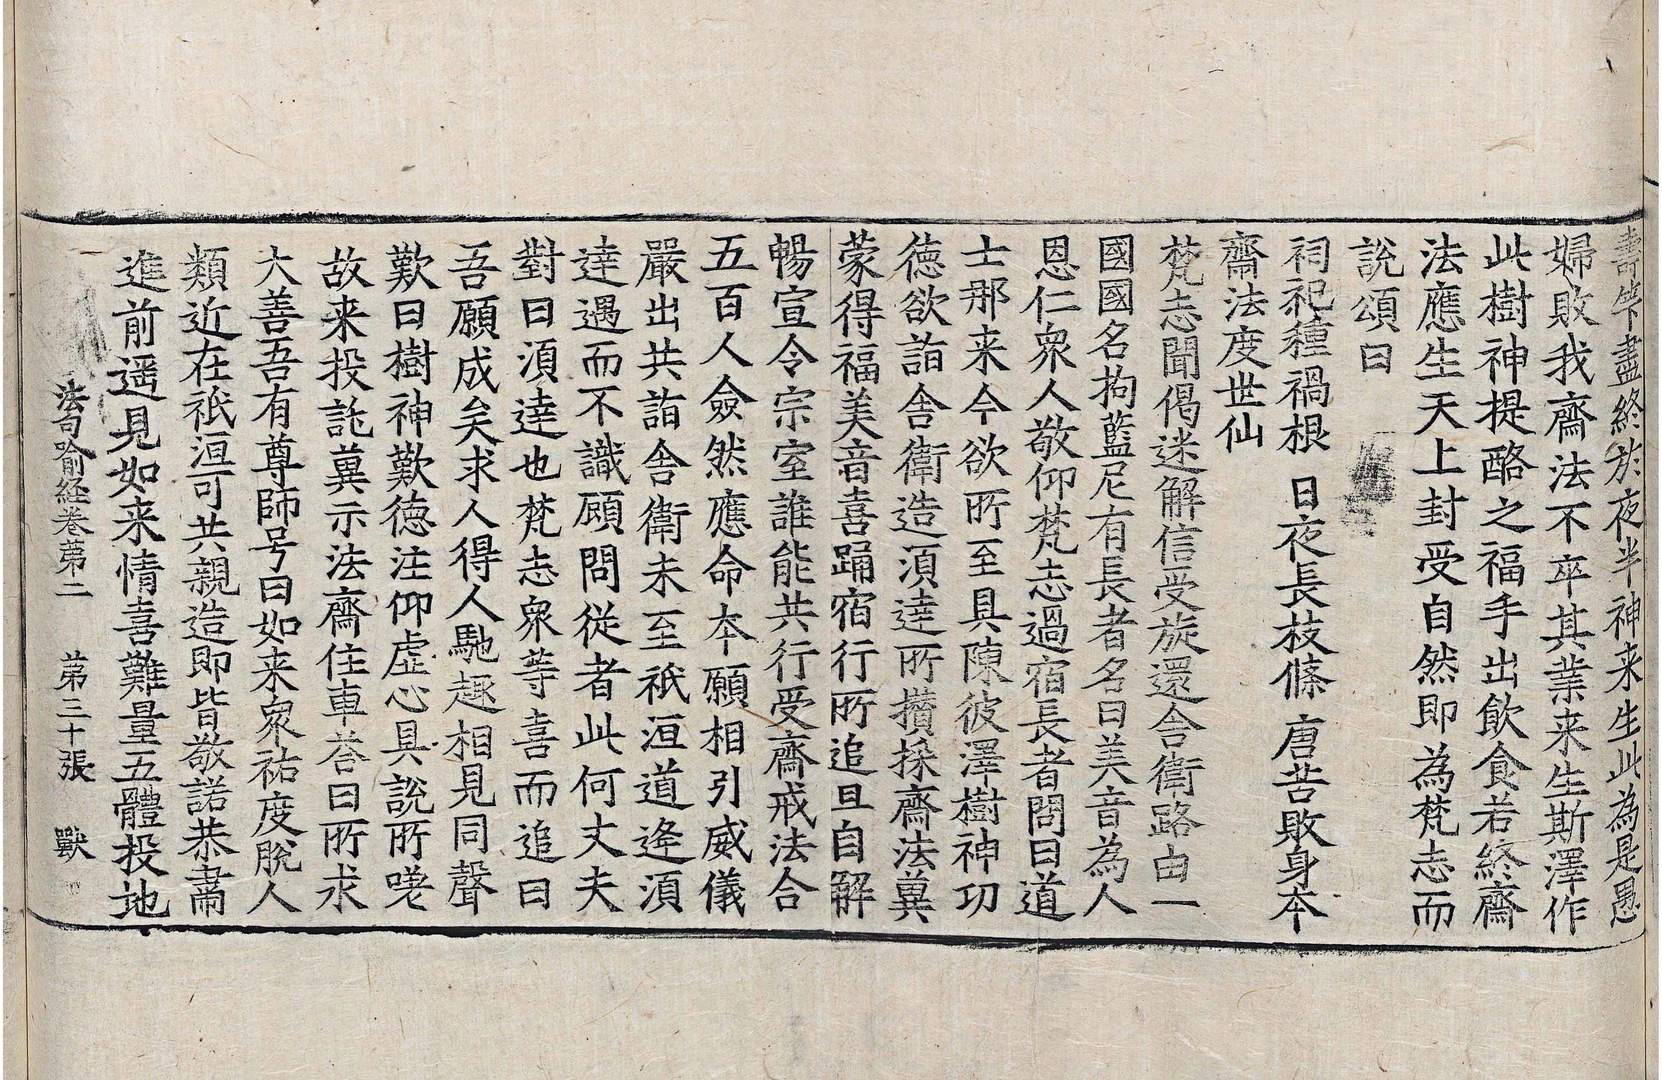 壽筭盡終於夜半神来生此為是愚
婦敗我齋法不卒其業来生斯澤作
此樹神提酪之福手出飲食若終齋
法應生天上封受自然即為梵志而
說頌曰
祠祀種禍根　日夜長枝條　唐苦敗身本
齋法度世仙
梵志聞偈迷解信受旋還舍衛路由一
國國名拘藍尼有長者名曰美音為人
恩仁衆人敬仰梵志過宿長者問曰道
士那来今欲所至具陳彼澤樹神功
德欲詣舍衛造湏達所攢採齋法冀
蒙得福美音喜踊宿行所追旦自解
暢宣令宗室誰能共行受齋戒法合
五百人僉然應命夲願相引威儀
嚴出共詣舍衛未至祇洹道逄湏
達遇而不識顧問從者此何丈夫
對曰湏達也梵志衆等喜而追曰
吾願成矣求人得人馳趣相見同聲
歎曰樹神歎德注仰虛心具說所嘆
故来投託冀示法齋住車荅曰所求
大善吾有尊師号曰如来衆祐度脫人
類近在祇洹可共親造即皆敬諾恭肅
進前遥見如来情喜難量五體投地
法句喻経卷苐二　苐三十張　獸